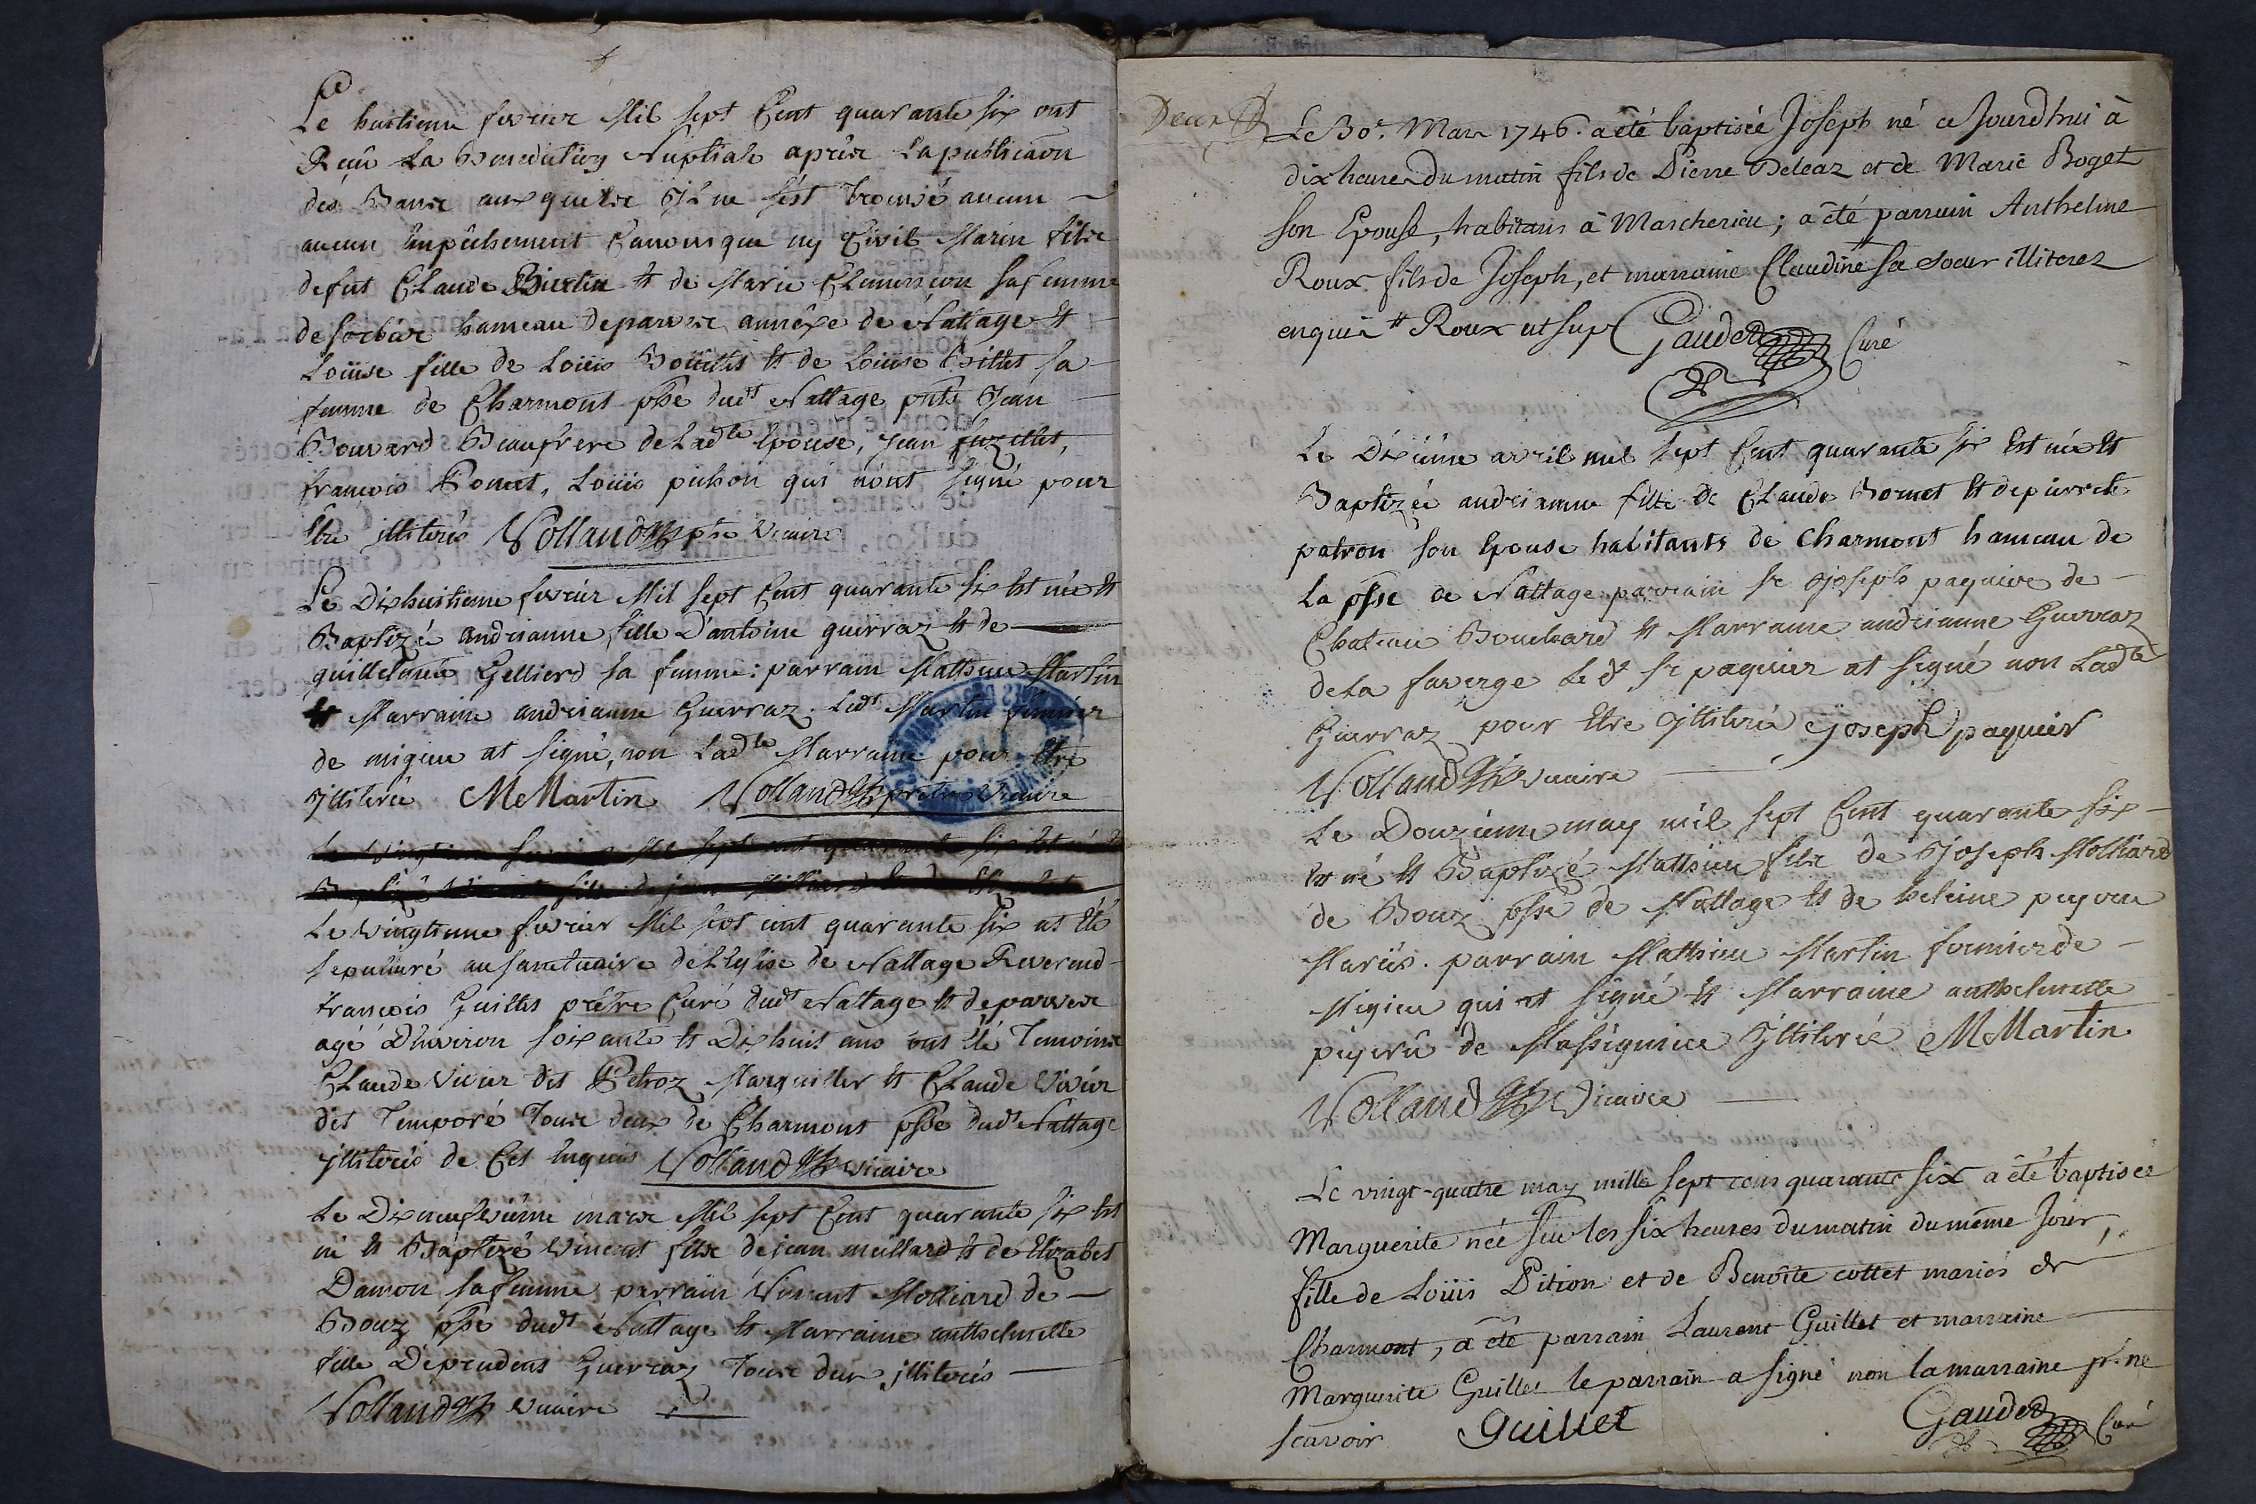 Le huitieme fevrier Mil sept Cent quarante six ont
Reçû La Benediction Nuptiale apres La publicaõn
des Bans auxquels Il ne s'est Trouvé aucun
aucun Empêchement Canonique ny Civil Marin fils
defut Claude & de Marie sa femme
de hameau de parves annéxe de Nattage &
Loüise fille de Loüis & de Loüise Billet sa
femme de Charmont psse dudt Nattage pnts Jean
Bouvard Beaufrere de Ladte Epouse, Jean
françois Ponet, Loüis pichon qui n'ont signé pour
Etre illiterés Volland ptre Vicaire
Le Dixhuitieme fevrier Mil sept Cent quarante six Est née &
Baptizé andrianne fille D'antoine guerraz & de
Gellierd sa femme : parrain Mathieu Martin
& Marraine andrianne Guerraz. Ledt Martin fermier
de migieu at signé, non Ladte Marraine pour Etre
Jlliterée MMartin Volland prêtre Vicaire
Le vingtieme fevrier Mil sept cent quarante six at Eté
sepulturé au sanctuaire de L'Eglise de Nattage Reverend
françois Guillet prêtre Curé dudt Nattage & de parves
agé D'Environ soixante & Dixhuit ans ont Eté Temoins
Claude Vivier dit Petroz Marguillier & Claude Vivier
dit Temporé Tous deux de Charmont psse dudt Nattage
jlliterés de Ces Enquis Volland Vicaire
Le Dixneufvieme mars Mil sept Cent quarante six Est
né & Baptizé Vincent fils de jean milliard & de Elizabet
Damon sa femme parrain Vincent Molliard de
Bouz psse dudt Nattage & Marraine anthelmette
fille De prudent Guerraz Tous deux jlliterés
Volland Vicaire
Le 30e. Mars 1746. a été baptisée Joseph né ce Jourdhui à
dix heures du matin fils de Pierre Deleaz et de Marie Boget
son Epouse, habitans à Marcherieu ; a été parrain Anthelme
Roux fils de Joseph, et marraine Claudine sa soeur illiterez
enquis Roux ut sup Gaudet Curé
Le Dixieme avril mil sept Cent quarante six Est née &
Baptizée andrianne fille de Claude Bornet & de pierrete
patron son Epouse habitants de Charmont hameau de
La psse de Nattage parrain sr joseph paquier de
Chateau Bouchard & Marraine andrianne Guerraz
de La faverge Le dt sr paquier at signé non Ladte
Guerraz pour Etre Jlliterée joseph paquier
Volland Vicaire
Le Douzieme may mil sept Cent quarante six
Est né & Baptizé Mathieu fils de Joseph Molliard
de Bouz psse de Nattage & de heleine peyvru
Mariés. parrain Mathieu Martin fermier de
Migieu qui at signé & Marraine anthelmette
peyvru de Massignieu Jlliterée MMartin
Volland Vicaire
Le vingt-quatre may mille sept cens quarante six a été baptisée
Marguerite née sur les six heures du matin du même Jour,
fille de Loüis Pition et de Benoîte cottet mariés de
Charmont, a été parrain Laurent Guillet et marraine
Marguerite Guillet le parrain a signé non la marraine pr. ne
scavoir Guillet Gaudet Curé